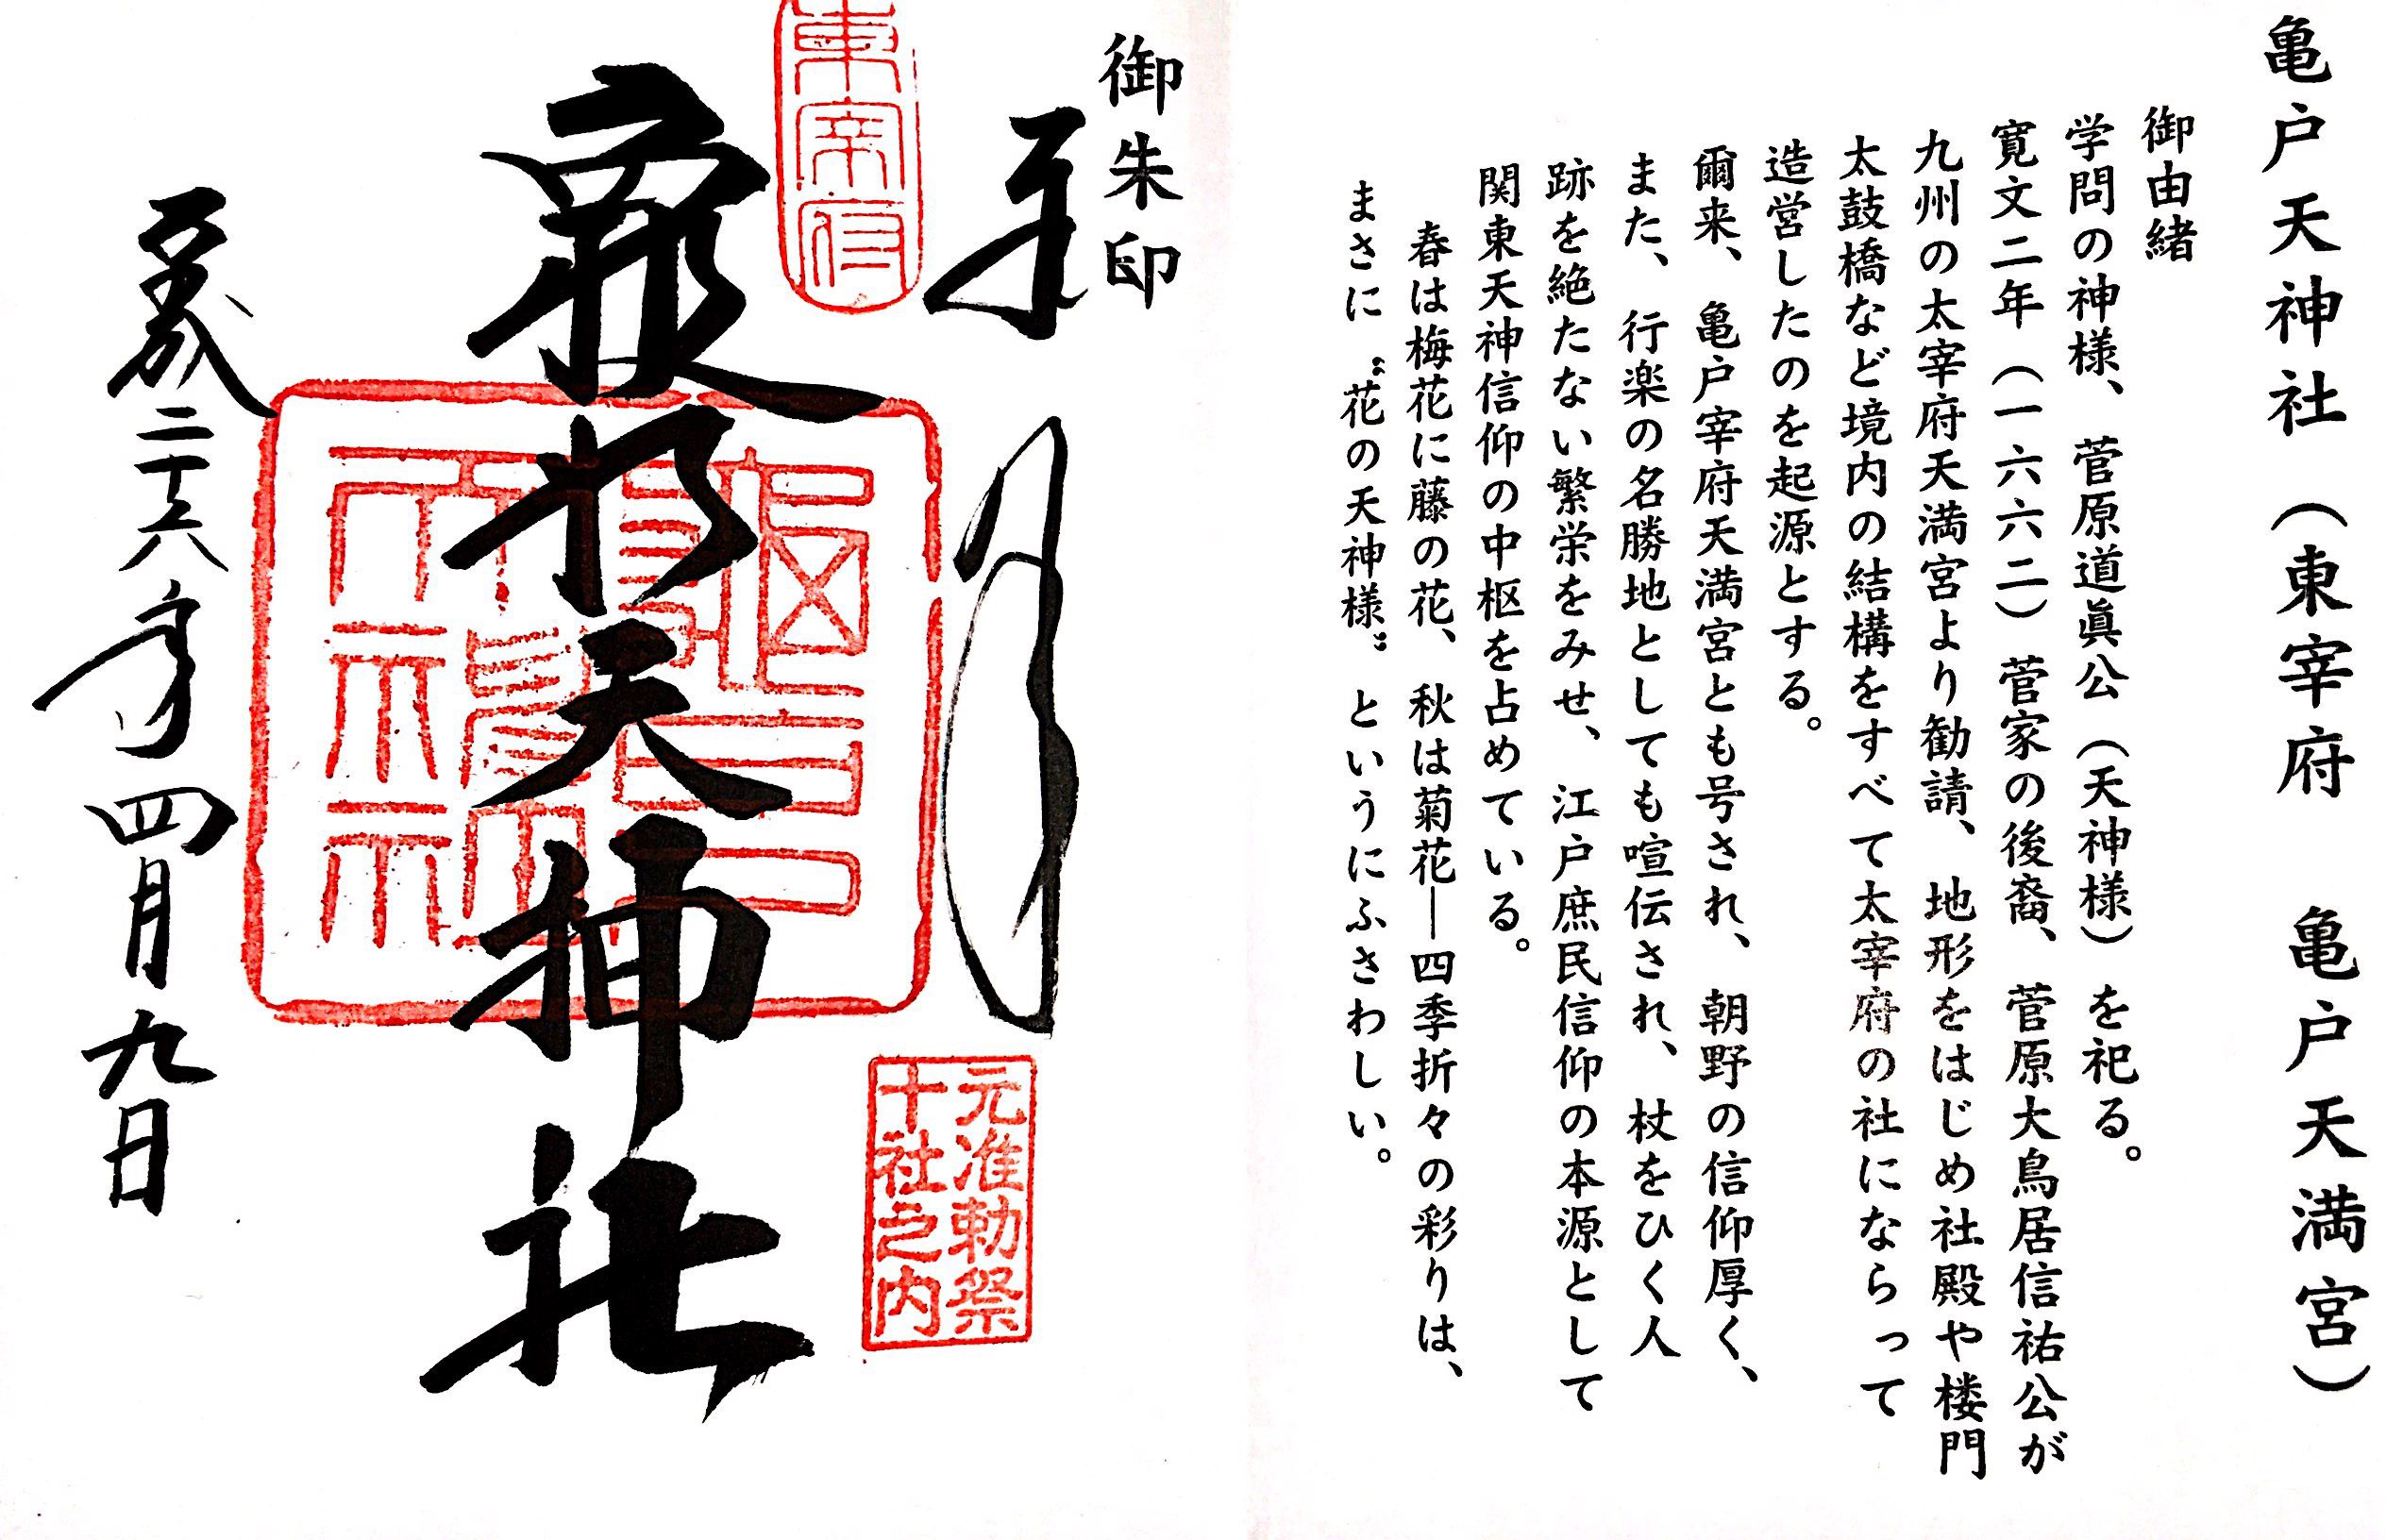 亀戸天神社（東宰府　亀戸天満宮）
御由緒
学問の神様、菅原道眞公（天神様）を祀る。
寛文二年（一六六二）菅家の後裔、菅原大鳥居信祐公が
九州の太宰府天満宮より勧請、地形をはじめ社殿や楼門
太鼓橋など境内の結構をすべて太宰府の社にならって
造営したのを起源とする。
爾来、亀戸宰府天満宮とも号され、朝野の信仰厚く、
また、行楽の名勝地としても喧伝され、杖をひく人
跡を絶たない繁栄をみせ、江戸庶民信仰の本源として
関東天神信仰の中枢を占めている。
春は梅花に藤の花、秋は菊花―四季折々の彩りは、
まさに〝花の天神様〟というにふさわしい。
御朱印
奉拝
東宰府
元准勅祭
十社之内
龜戸天神社
平成二十六年四月九日